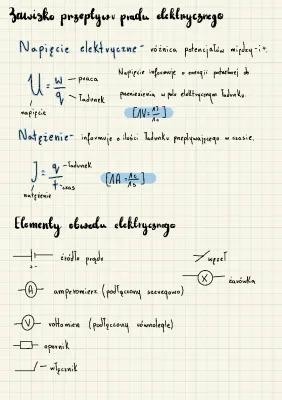 Zjawisko przepływu prądu elektrycznego
Napięcie elektryczne - różnica potencjałów między - i +.
U = w/q - praca - ładunek
napięcie
Napięcie informuje o energii potrzebnej do
przeniesienia w polu elektrycznym ładunku.
[1V = 1J/1C]
Natężenie - informuje o ilości ładunku przepływającego w czasie.
J = q/t - ładunek - czas
natężenie
[1A = 1C/1s]
Elementy obwodu elektrycznego
źródło prądu
+ -
węzeł
X żarówka
A amperomierz (podłączony szeregowo)
V voltomierz (podłączony równolegle)
opornik
włącznik